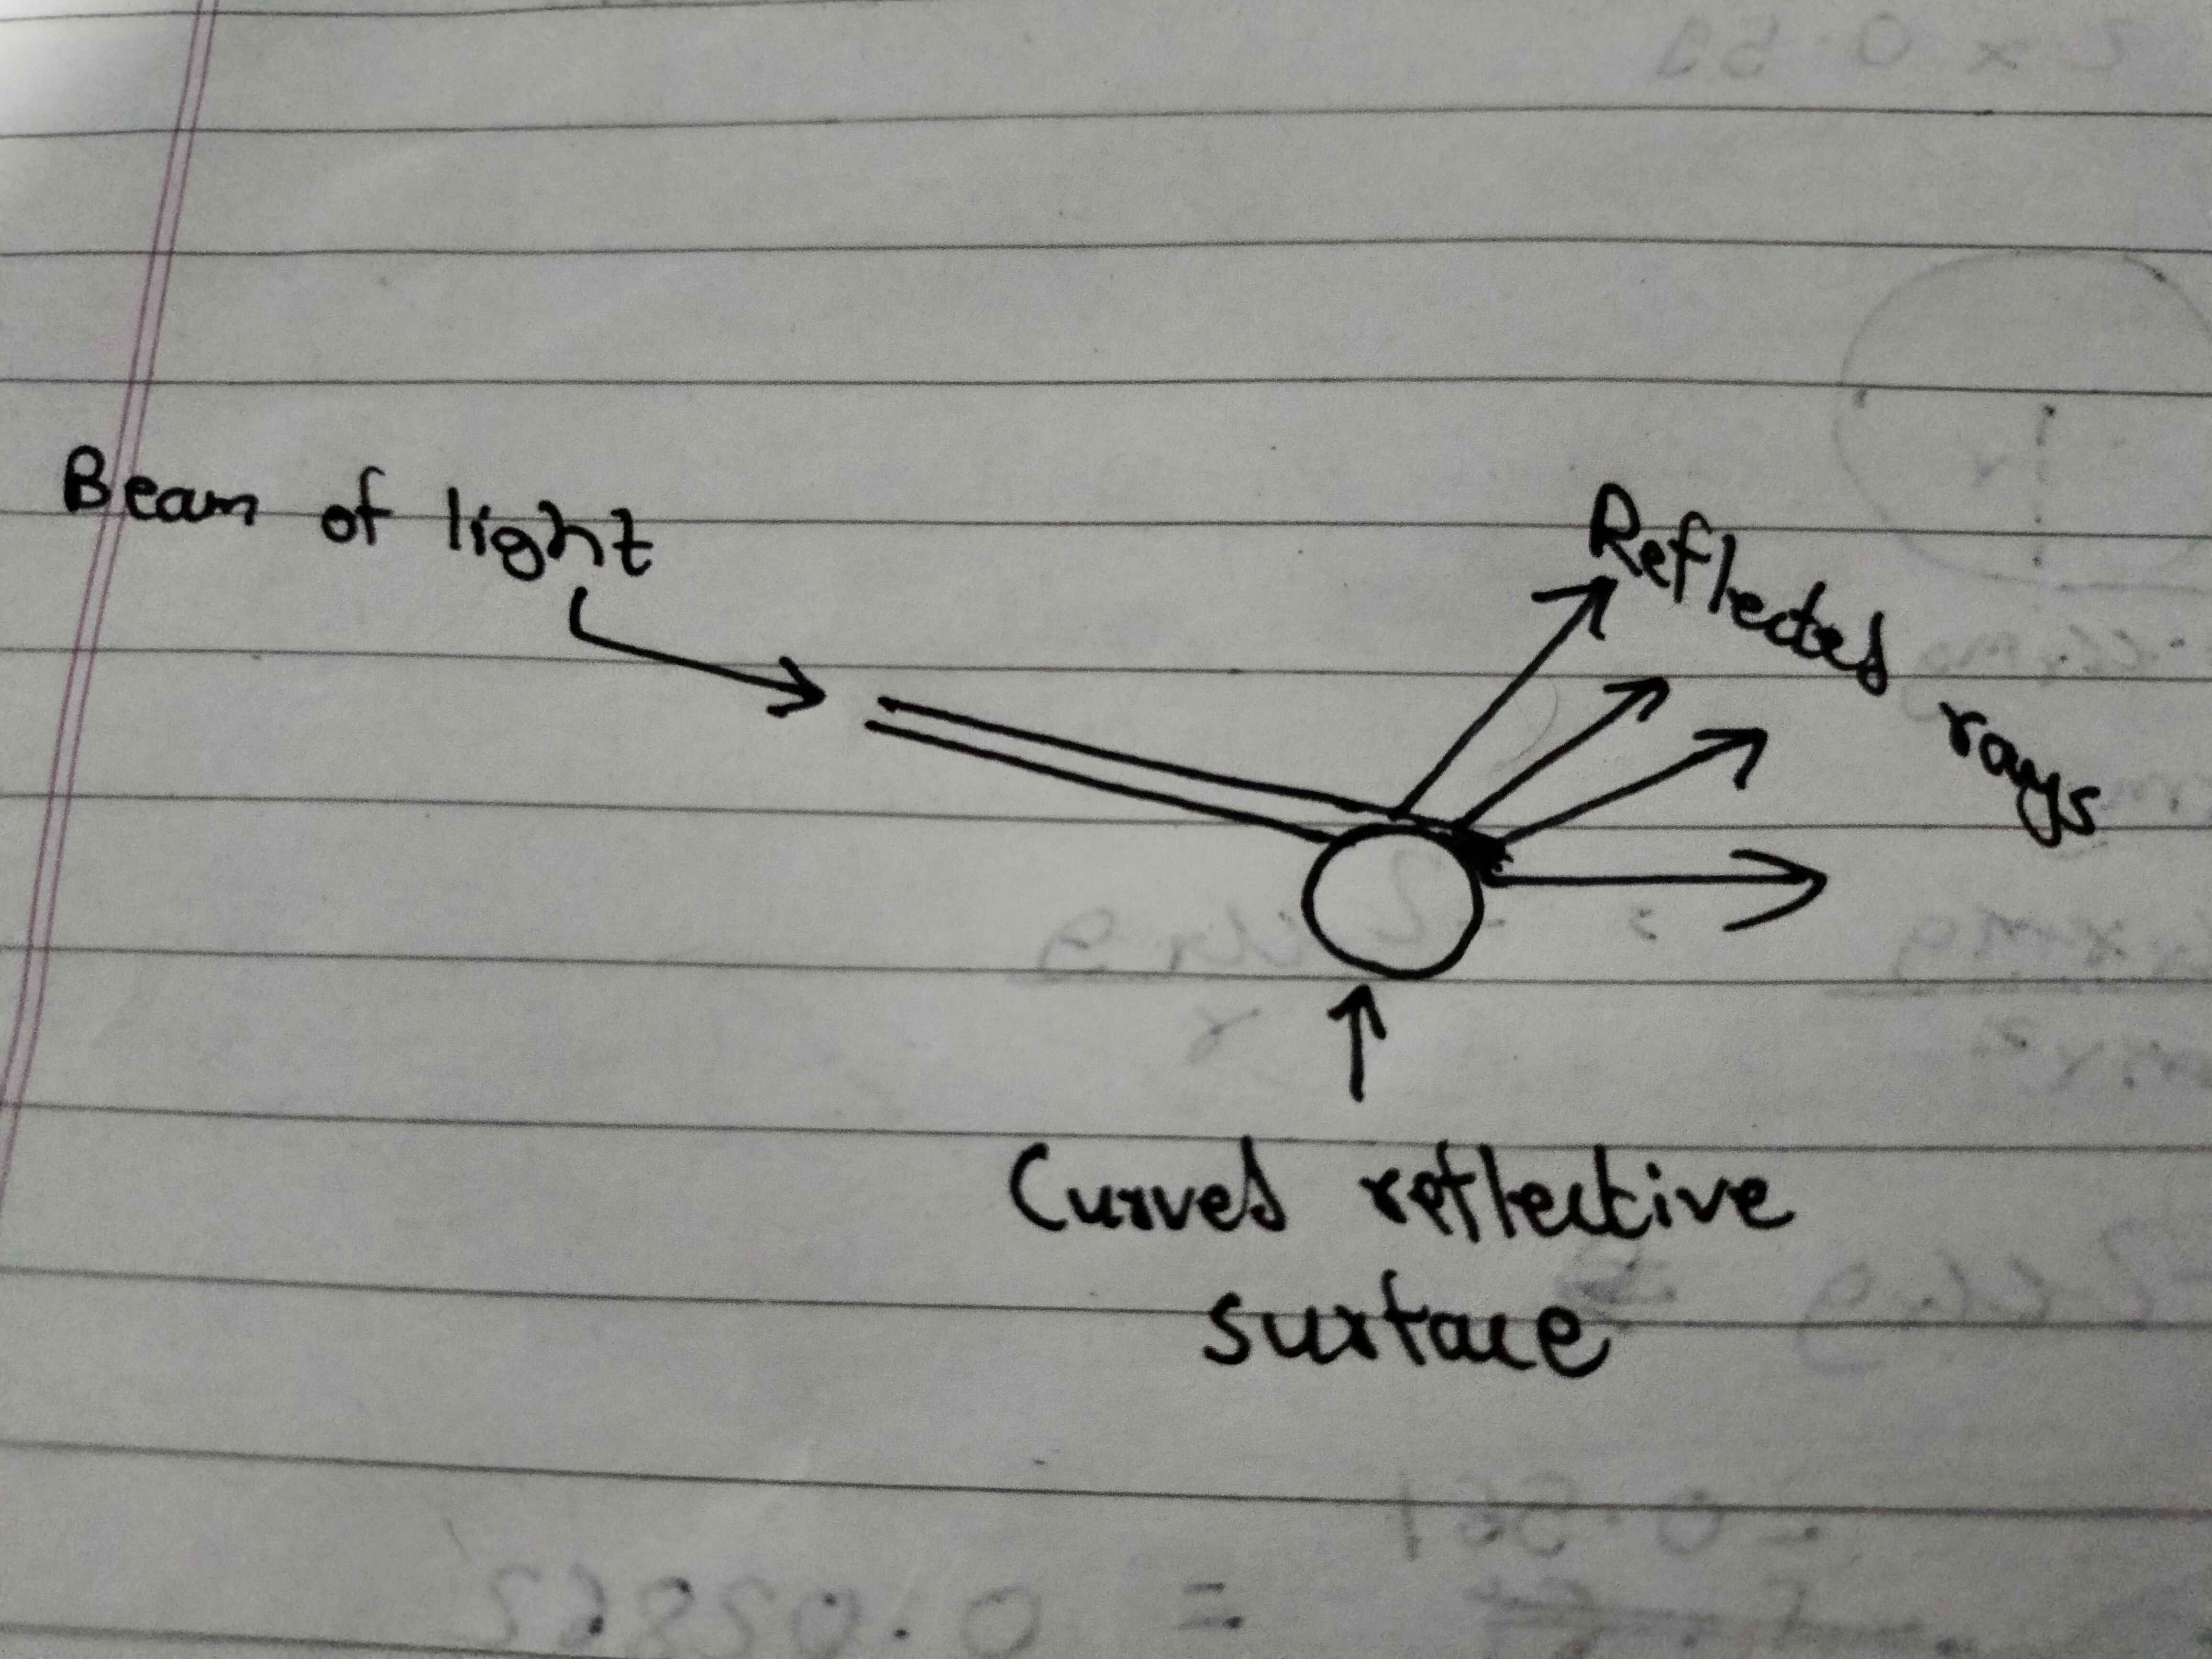 Beam of light
Reflected rays
Curved reflective
surface